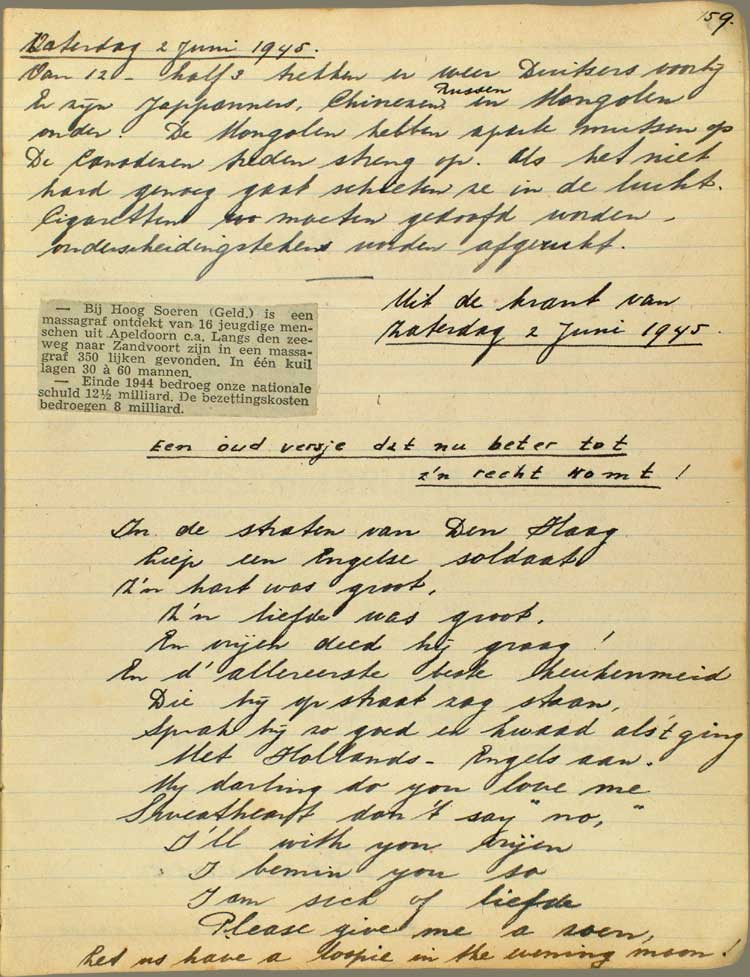 159.
Zaterdag 2 Juni 1945.
Van 12 - half 3 trekken er weer Duitsers voorbij
Er zijn Jappanners, Chinezen, Russen in Mongolen
onder. De Mongolen hebben aparte mutsen op
De Canadezen treden streng op. Als het niet
hard genoeg gaat schieten ze in de lucht.
Cigaretten moeten gedoofd worden,
onderscheidingstekens worden afgerukt.
Uit de krant van
Zaterdag 2 Juni 1945.
— Bij Hoog Soeren (Geld.) is een
massagraf ontdekt van 16 jeugdige men-
schen uit Apeldoorn c.a. Langs den zee-
weg naar Zandvoort zijn in een massa-
graf 350 lijken gevonden. In één kuil
lagen 30 à 60 mannen.
— Einde 1944 bedroeg onze nationale
schuld 12½ milliard. De bezettingskosten
bedroegen 8 milliard.
Een oud versje dat nu beter tot
z'n recht komt!
In de straten van Den Haag
Liep een Engelse soldaat
Z'n hart was groot,
Z'n liefde was groot,
En vrijen deed hij graag!
En d'allereerste beste keukenmeid
Die hij op straat zag staan,
Sprak hij zo goed en kwaad als 't ging
Met Hollands - Engels aan.
My darling do you love me
Sweetheart don't say "no,"
I'll with you vrijen
I bemin you so
I am sick of liefde
Please give me a zoen,
Let us have a loopie in the evening moon!